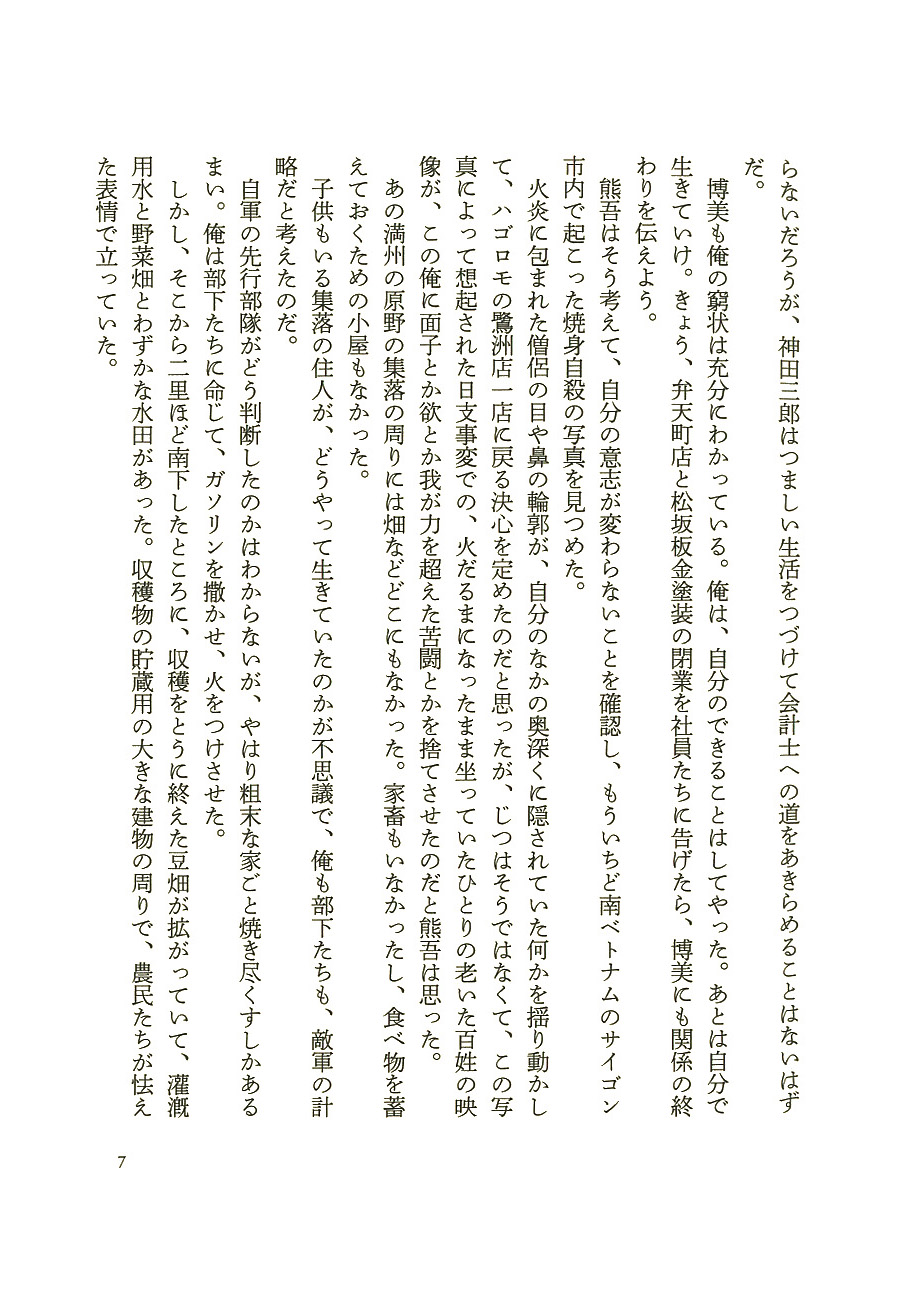 らないだろうが、神田三郎はつましい生活をつづけて会計士への道をあきらめることはないはず
だ。
博美も俺の窮状は充分にわかっている。俺は、自分のできることはしてやった。あとは自分で
生きていけ。きょう、弁天町店と松坂板金塗装の閉業を社員たちに告げたら、博美にも関係の終
わりを伝えよう。
熊吾はそう考えて、自分の意志が変わらないことを確認し、もういちど南ベトナムのサイゴン
市内で起こった焼身自殺の写真を見つめた。
火炎に包まれた僧侶の目や鼻の輪郭が、自分のなかの奥深くに隠されていた何かを揺り動かし
て、ハゴロモの鷺洲店一店に戻る決心を定めたのだと思ったが、じつはそうではなくて、この写
真によって想起された日支事変での、火だるまになったまま坐っていたひとりの老いた百姓の映
像が、この俺に面子とか欲とか我が力を超えた苦闘とかを捨てさせたのだと熊吾は思った。
あの満州の原野の集落の周りには畑などどこにもなかった。家畜もいなかったし、食べ物を蓄
えておくための小屋もなかった。
子供もいる集落の住人が、どうやって生きていたのかが不思議で、俺も部下たちも、敵軍の計
略だと考えたのだ。
自軍の先行部隊がどう判断したのかはわからないが、やはり粗末な家ごと焼き尽くすしかある
まい。俺は部下たちに命じて、ガソリンを撒かせ、火をつけさせた。
しかし、そこから二里ほど南下したところに、収穫をとうに終えた豆畑が拡がっていて、灌漑
用水と野菜畑とわずかな水田があった。収穫物の貯蔵用の大きな建物の周りで、農民たちが怯え
た表情で立っていた。
7